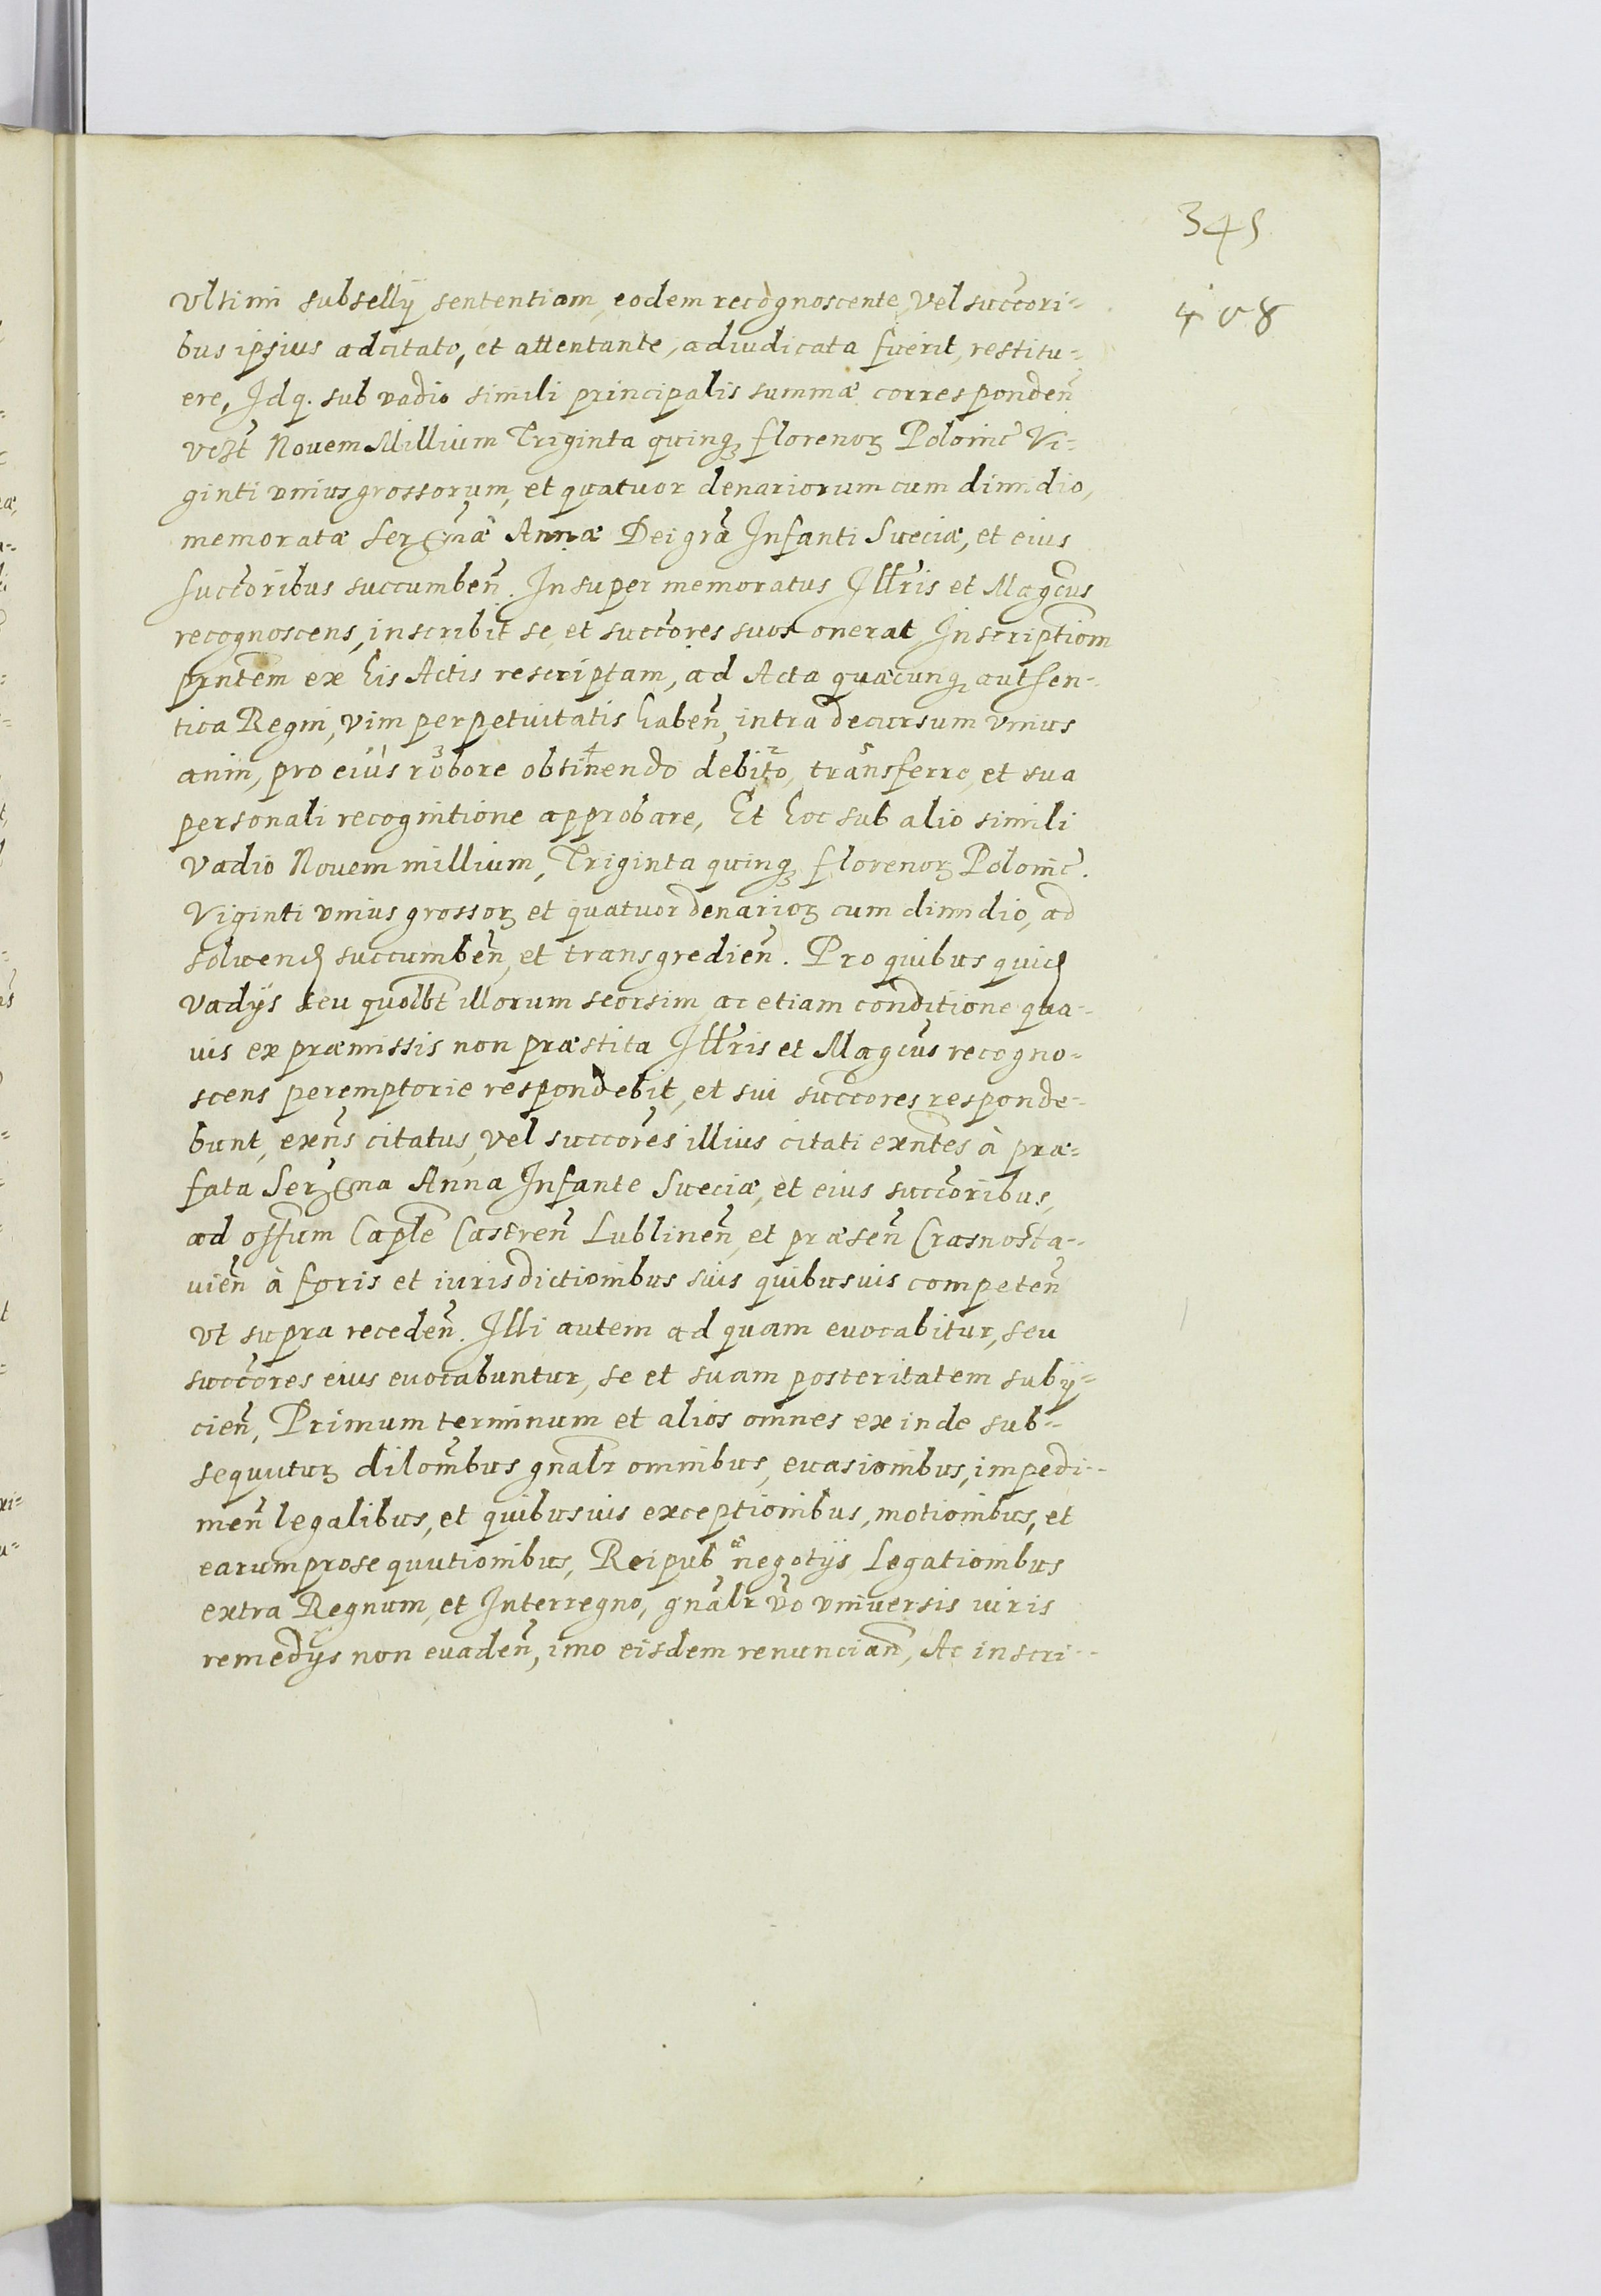 345
408
Vltimi subsellÿ sententiam, eodem recognoscente, vel succõri-
bus ipsius adcitato, et attentante, adiudicata fuerit, restitu-
ere, Idq. sub vadio simili principalis summæ corresponden̄
vest Nouem Millium Triginta quinqꝫ florenoꝝ Polonic̄ Vi-
ginti vnius grossorum, et quatuor denariorum cum dimidio,
memoratæ Serꝫmæ Annæ Dei grã Infanti Sueciæ, et eius
succõribus succumben̄. Insuper memoratus Illr̃is et Magcūs
recognoscens, inscribit se, et succõres suos onerat Inscriptiõm
prñtem ex his Actis rescriptam, ad Acta quæcunqꝫ authen-
tica Regni, vim perpetuitatis haben̄, intra decursum vnius
anni, pro eius¹ robore³ obtinendo⁴ debito², transferre⁵, et sua
personali recognitione approbare, Et hoc sub alio simili
vadio Nouem millium, Triginta quinqꝫ florenoꝝ Polonic̄.
Viginti vnius grossoꝝ et quatuor denarioꝝ cum dimidio, ad
soluend succumben̄, et transgredien̄. Pro quibus quid
vadÿs seu quolbt̃ illorum seorsim ac etiam conditione qua-
uis ex præmissis non præstita Illr̃is et Magcūs recogno-
scens peremptorie respondebit, et sui succõres responde-
bunt, exñs citatus, vel succõres illius citati exñtes à præ-
fata Serꝫma Anna Infante Sueciæ, et eius succõribus,
ad offum Caplẽ Castren̄ Lublinen̄, et præsen̄ Crasnosta-
uien̄ à foris et iurisdictionibus suis quibusuis competen̄
vt supra receden̄. Illi autem ad quam euocabitur, seu
succõres eius euocabuntur, se et suam posteritatem subÿ-
cien̄, Primum terminum et alios omnes exinde sub-
sequutuꝝ dilom̃bus gñalr omnibus, euasionibus, impedi-
men̄ legalibus, et quibusuis exceptionibus, motionibus, et
earum prosequutionibus, Reipubᵃᵉ negotÿs, Legationibus
extra Regnum, et Interregno, gñalr võ vniuersis iuris
remedÿs non euaden̄, imo eisdem renuncian̄, Ac inscri-